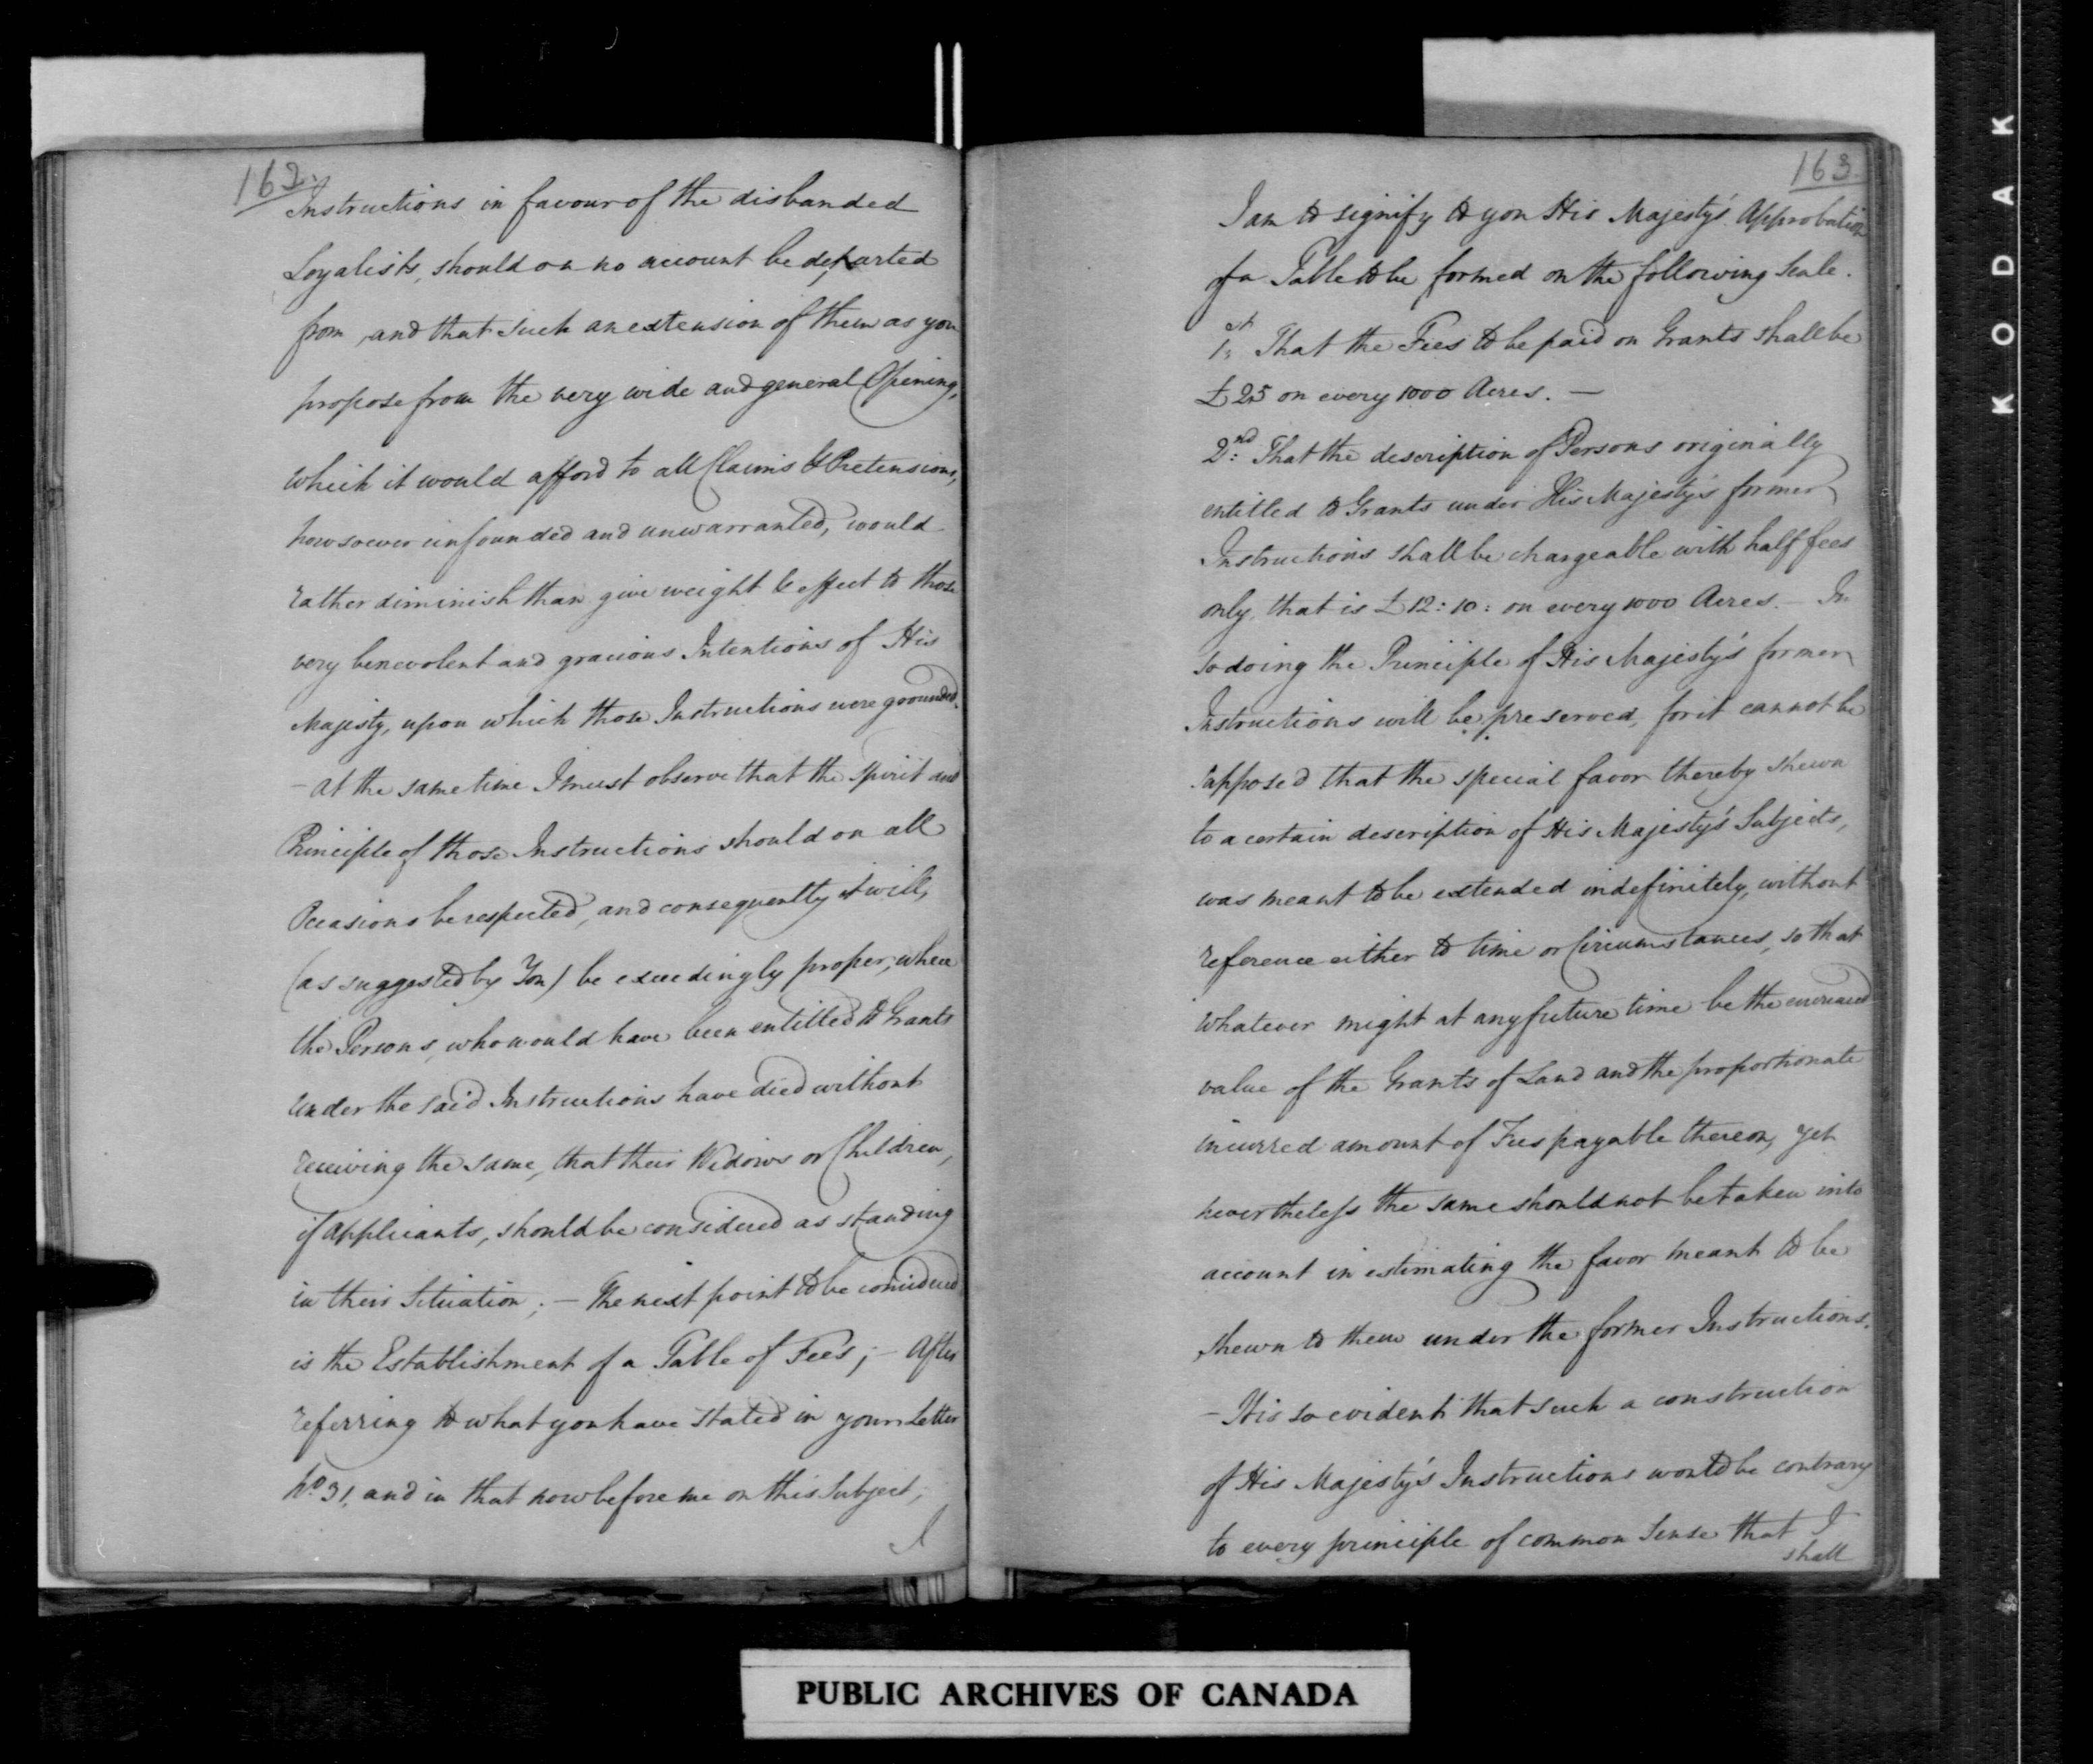 162.
Instructions in favour of the disbanded
Loyalists, should on no account be departed
from, and that such an extension of them as you
propose from the very wide and general Opening,
which it would afford to all Claims & Pretensions,
howsoever unfounded and unwarranted, would
rather diminish than give weight & effect to those
very benevolent and gracious Intentions of His
Majesty, upon which those Instructions were grounded.
– at the same time I must observe that the spirit and
Principle of those Instructions should on all
Occasions be respected, and consequently it will,
(as suggested by You) be exceedingly proper, when
the Persons, who would have been entitled to Grants
under the said Instructions have died without
receiving the same, that their Widows or Children,
if applicants, should be considered as standing
in their Situation; – The next point to be considered
is the Establishment of a Table of Fees; – After
referring to what you have stated in your Letter
No 31, and in that now before me on this Subject,
I
163.
I am to signify to you His Majesty's Approbation
of a Table to be formed on the following Scale.
1st That the Fees to be paid on Grants shall be
£25 on every 1000 Acres. —
2nd: That the description of Persons originally
entitled to Grants under His Majesty's former
Instructions shall be chargeable with half fees
only, that is £12:10: on every 1000 Acres. – In
so doing the Principle of His Majesty's former
Instructions will be preserved, for it cannot be
supposed that the special favor thereby shewn
to a certain description of His Majesty's Subjects,
was meant to be extended indefinitely, without
reference either to time or Circumstances, so that
whatever might at any future time be the encreased
value of the Grants of Land and the proportionate
incurred amount of Fees payable thereon, yet
nevertheless the same should not be taken into
account in estimating the favor meant to be
shewn to them under the former Instructions.
– It is so evident that such a construction
of His Majesty's Instructions would be contrary
to every principle of common Sense that I
shall
KODAK
PUBLIC ARCHIVES OF CANADA